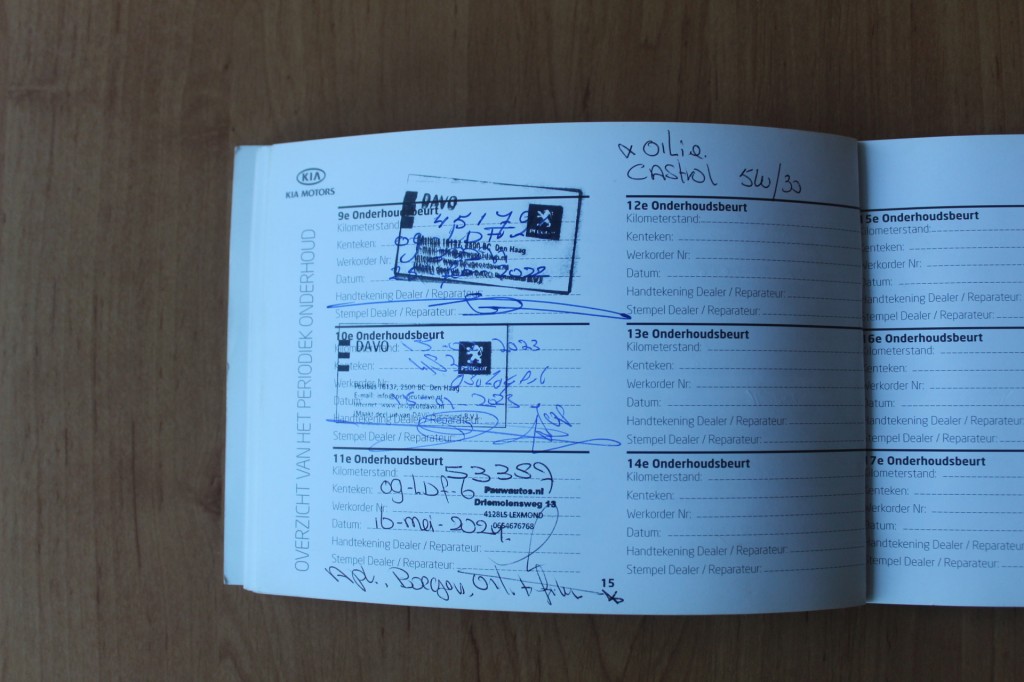 KIA
KIA MOTORS
OVERZICHT VAN HET PERIODIEK ONDERHOUD
9e Onderhoudsbeurt
DAVO
Kilometerstand: 45179
Kenteken:
Den Haag
Werkorder Nr:
Datum: 2022
Handtekening Dealer / Reparateur:
Stempel Dealer / Reparateur:
10e Onderhoudsbeurt
DAVO 2023
PEUGEOT
Werkorder Nr:
Postbus 16137, 2500 BC Den Haag
Datum: 2023
Handtekening Dealer / Reparateur:
Stempel Dealer / Reparateur:
11e Onderhoudsbeurt
Kilometerstand: 53387
Kenteken: 09-LDF-6
Pauwautos.nl
Driemolensweg 13
Werkorder Nr:
4128LS LEXMOND
0654676768
Datum: 16-mei-2024.
Handtekening Dealer / Reparateur:
Stempel Dealer / Reparateur:
Apk, Olie + filter
15
x Olie.
CAStrol 5W/30
12e Onderhoudsbeurt
Kilometerstand:
Kenteken:
Werkorder Nr:
Datum:
Handtekening Dealer / Reparateur:
Stempel Dealer / Reparateur:
13e Onderhoudsbeurt
Kilometerstand:
Kenteken:
Werkorder Nr:
Datum:
Handtekening Dealer / Reparateur:
Stempel Dealer / Reparateur:
14e Onderhoudsbeurt
Kilometerstand:
Kenteken:
Werkorder Nr:
Datum:
Handtekening Dealer / Reparateur:
Stempel Dealer / Reparateur:
15e Onderhoudsbeurt
Kilometerstand:
Kenteken:
Werkorder Nr:
Datum:
Handtekening Dealer / Reparateur:
Stempel Dealer / Reparateur:
16e Onderhoudsbeurt
Kilometerstand:
Kenteken:
Werkorder Nr:
Datum:
Handtekening Dealer / Reparateur:
Stempel Dealer / Reparateur:
17e Onderhoudsbeurt
Kilometerstand:
Kenteken:
Werkorder Nr:
Datum:
Handtekening Dealer / Reparateur:
Stempel Dealer / Reparateur: